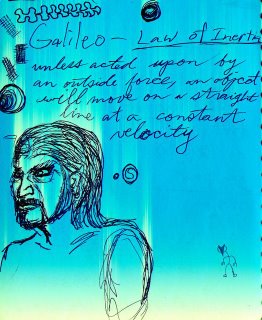 Galileo - Law of Inertia
unless acted upon by
an outside force, an object
will move on a straight
line at a constant
velocity